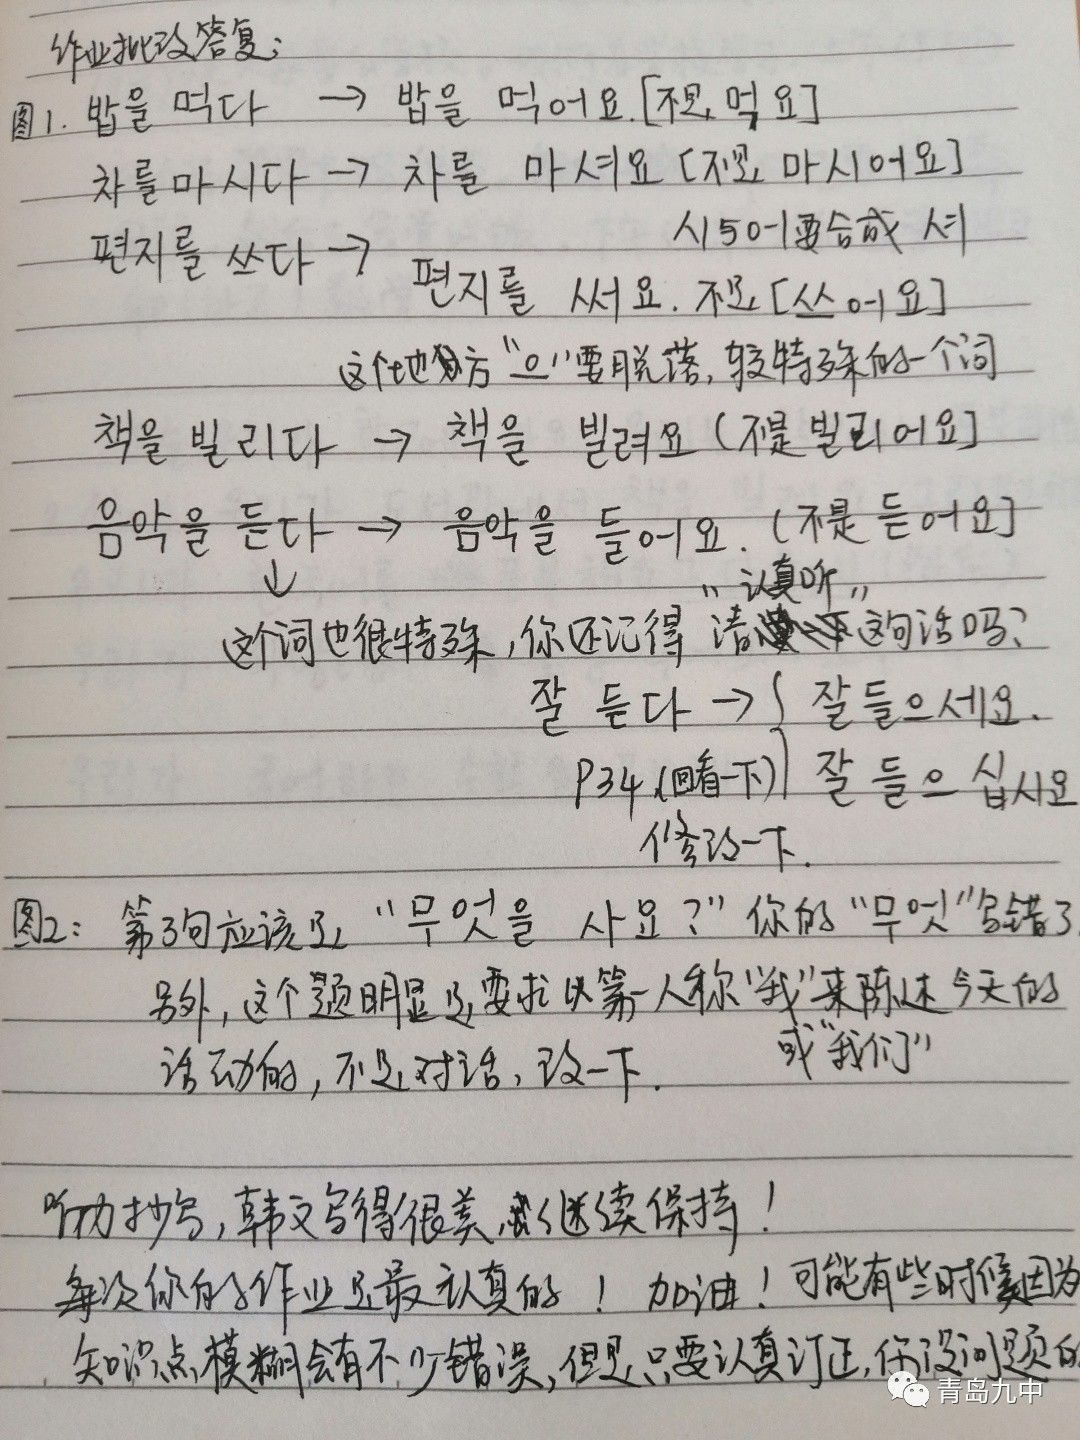 作业批改答复：
图1. 밥을 먹다 → 밥을 먹어요.[不是 먹요]
차를 마시다 → 차를 마셔요 [不是 마시어요]
시与어要合成 셔
편지를 쓰다 → 편지를 써요. 不是 [쓰어요]
这个地方"으"要脱落，较特殊的一个词
책을 빌리다 → 책을 빌려요 (不是 빌리어요]
음악을 듣다 → 음악을 들어요. (不是 듣어요]
↓ "认真听"
这个词也很特殊，你还记得 请 这句话吗？
잘 듣다 → { 잘 들으세요.
P34 (回看一下) 잘 들으십시요
修改一下.
图2: 第3句应该是 "무엇을 사요?" 你的 "무엇"写错了
另外，这个题明显是要求以第一人称"我"来陈述今天的
或"我们"
活动的，不是对话，改一下.
听力抄写，韩文写得很美，继续保持！
每次你的作业是最认真的！加油！可能有些时候因为
知识点模糊会有不少错误，但是只要认真订正，你没问题的
青岛九中